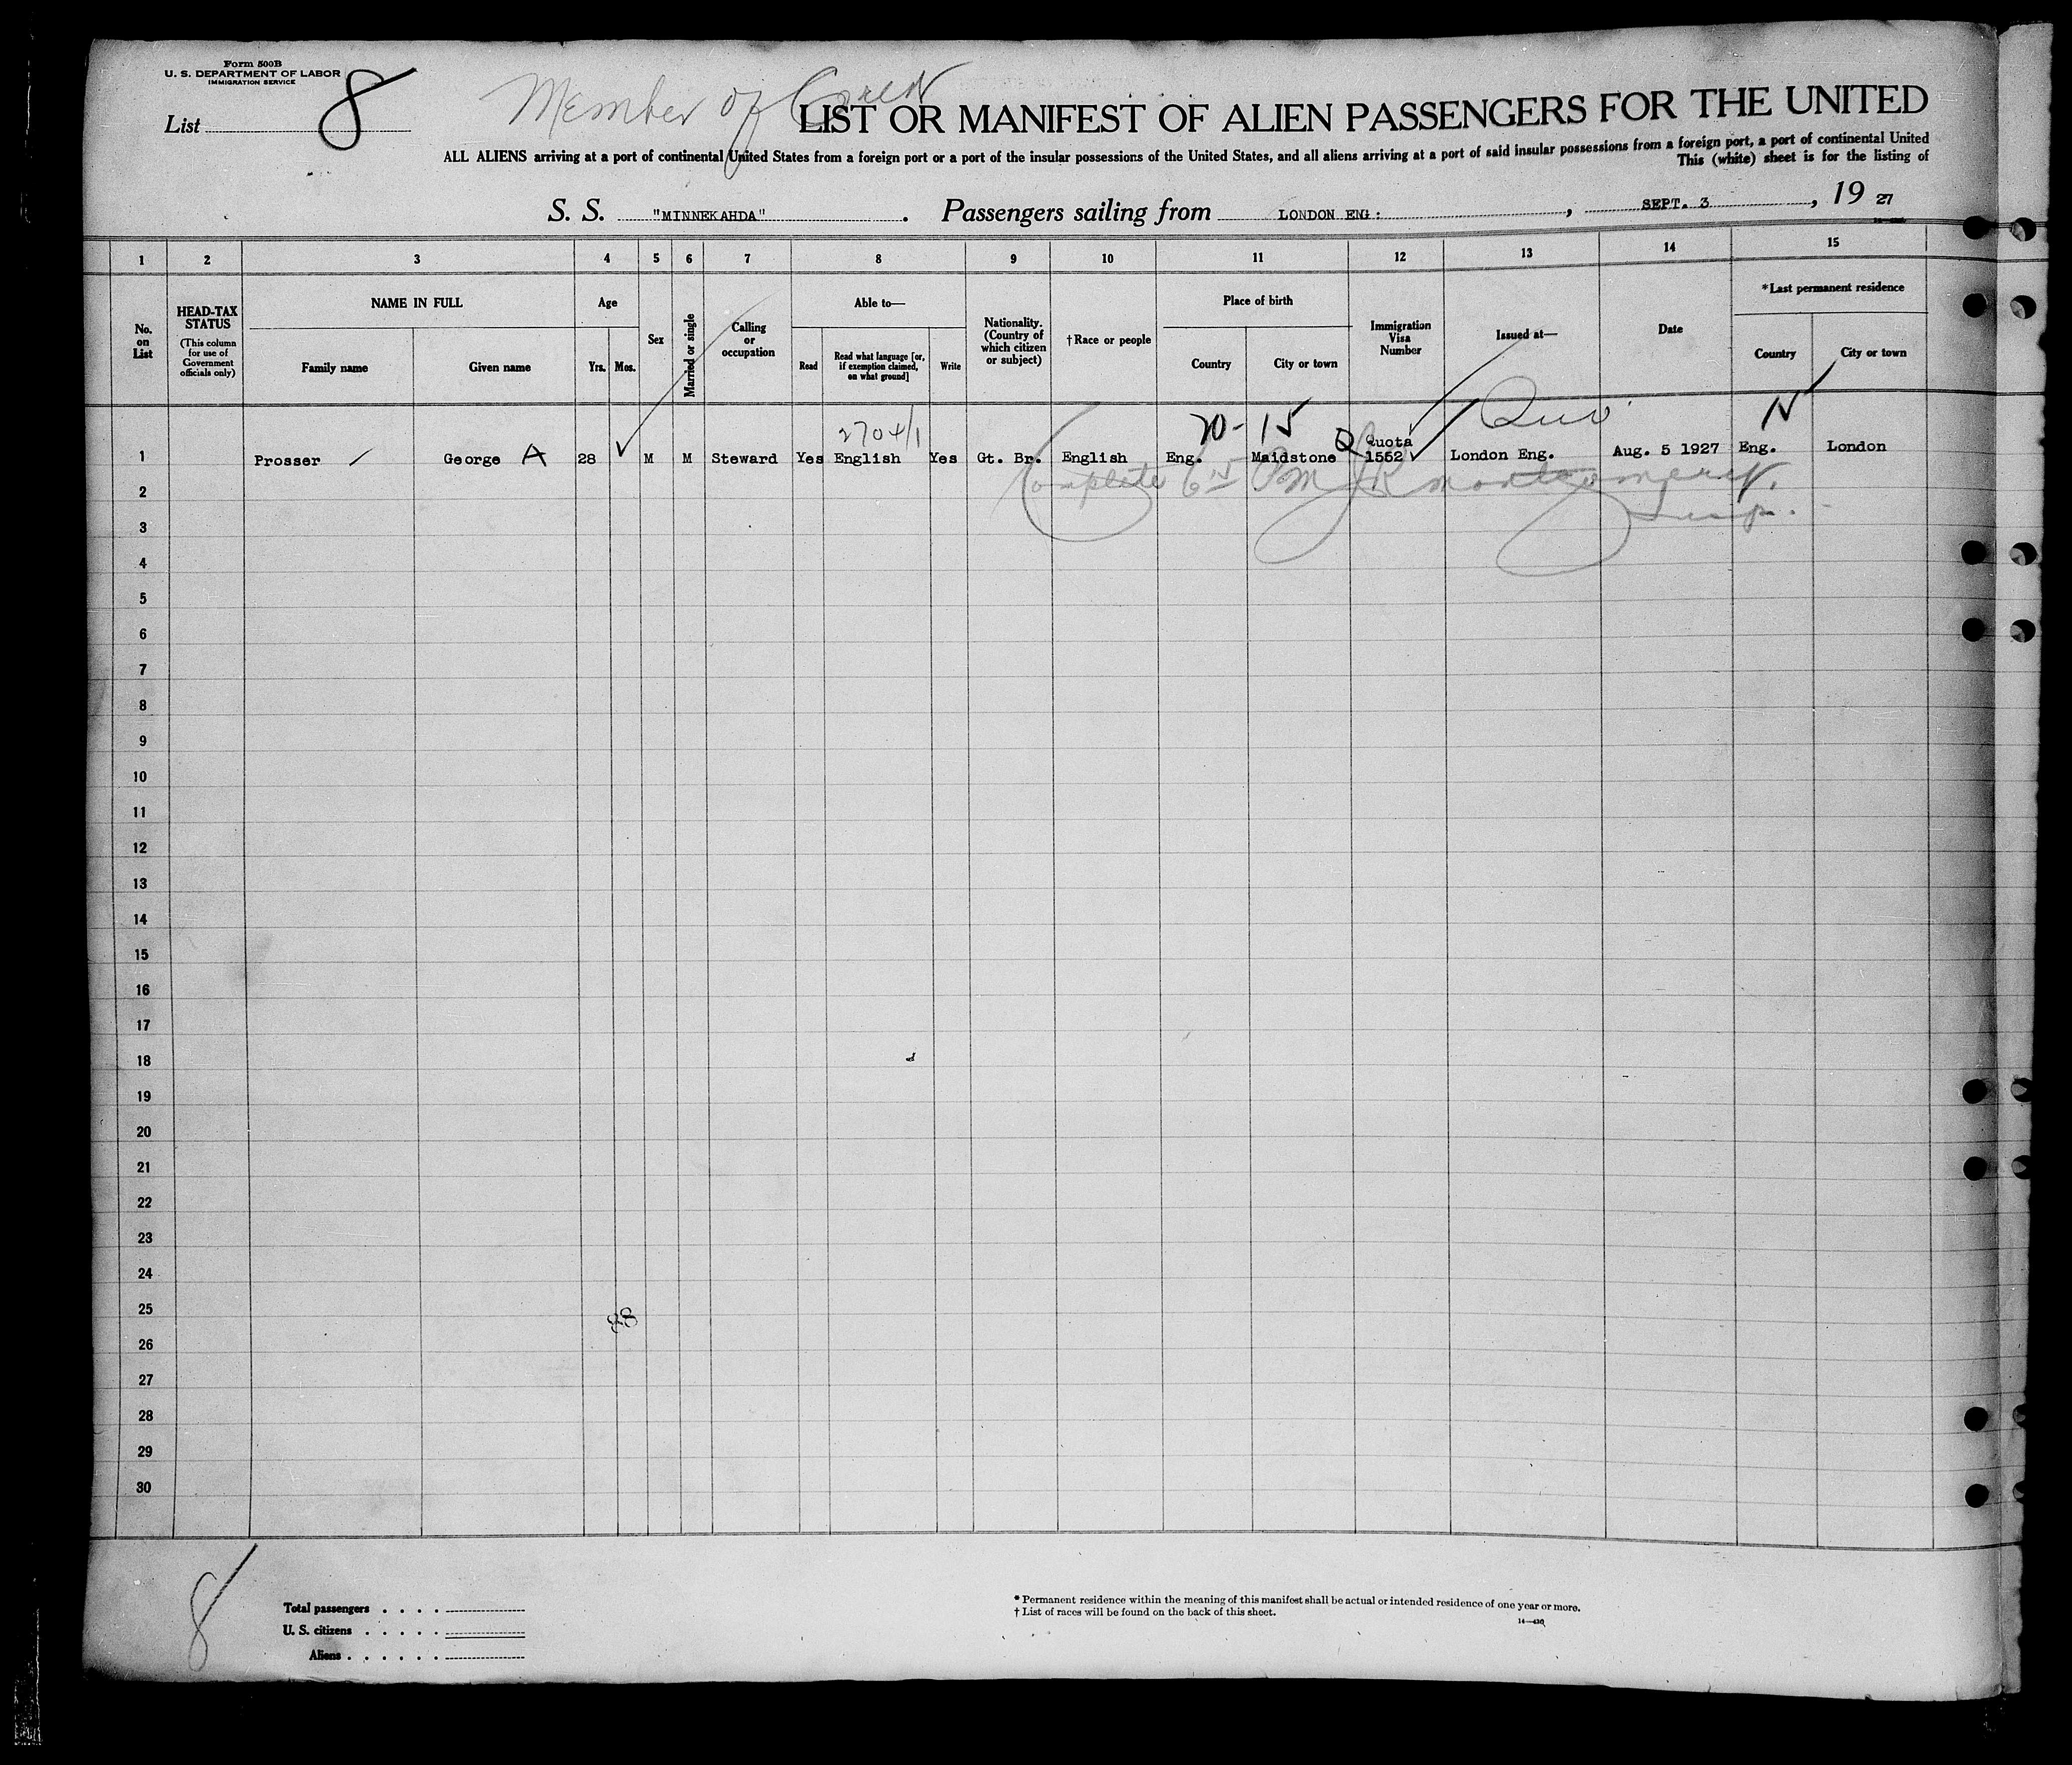 Form 500B
U. S. DEPARTMENT OF LABOR
IMMIGRATION SERVICE
List 8
Member of Crew
LIST OR MANIFEST OF ALIEN PASSENGERS FOR THE UNITED
ALL ALIENS arriving at a port of continental United States from a foreign port or a port of the insular possessions of the United States, and all aliens arriving at a port of said insular possessions from a foreign port, a port of continental United
This (white) sheet is for the listing of
S. S. "MINNEKAHDA". Passengers sailing from LONDON ENG: , SEPT. 3 , 19 27
1 2 3 4 5 6 7 8 9 10 11 12 13 14 15
No. on List
HEAD-TAX STATUS (This column for use of Government officials only)
NAME IN FULL
Family name
Given name
Age
Yrs. Mos.
Sex
Married or single
Calling or occupation
Able to—
Read
Read what language [or, if exemption claimed, on what ground]
Write
Nationality. (Country of which citizen or subject)
†Race or people
Place of birth
Country
City or town
Immigration Visa Number
Issued at—
Date
*Last permanent residence
Country
City or town
2704/1 70-15 Q Quota
1 Prosser George A 28 M M Steward Yes English Yes Gt. Br. English Eng. Maidstone 1552 London Eng. Aug. 5 1927 Eng. London
Complete 6 15 PM J R Montgomery.
Insp.
2
3
4
5
6
7
8
9
10
11
12
13
14
15
16
17
18
19
20
21
22
23
24
25
26
27
28
29
30
8
Total passengers . . . .
U. S. citizens . . . . .
Aliens . . . . . .
* Permanent residence within the meaning of this manifest shall be actual or intended residence of one year or more.
† List of races will be found on the back of this sheet.